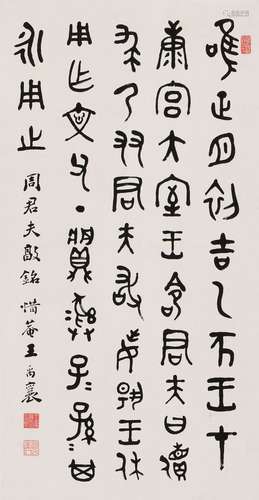 唯正月初吉乙亥王才
康宮大室王命君夫曰儥
求乃友君夫敢敏揚王休
用乍文父丁彝子=孫=其
永用止
周君夫敦銘 惜菴王禹襄